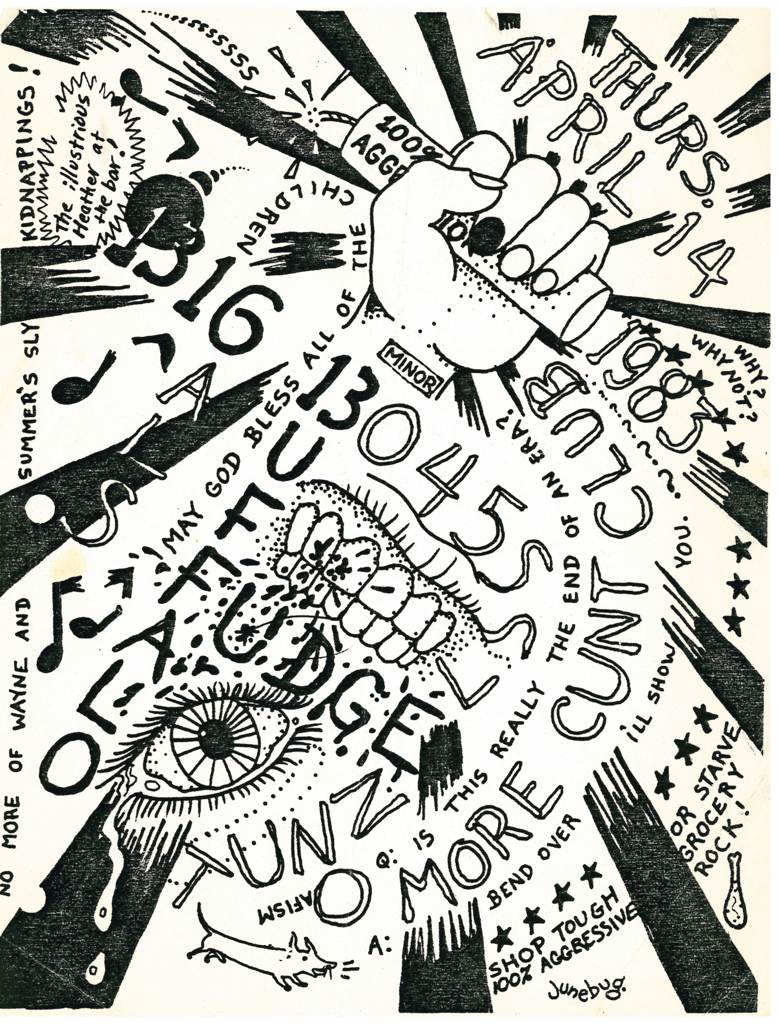 THURS.
APRIL 14
1983
KIDNAPPINGS!
The illustrious
Heather at
the bar!
100%
AGGR
1316
MINOR
NO MORE OF WAYNE AND SUMMER'S SLY
! MAY GOD BLESS ALL OF THE CHILDREN
13UFFALO
FUDGE
TUNZ
NO MORE CUNT CLUB
Q: IS THIS REALLY THE END OF AN ERA?
A: BEND OVER I'LL SHOW YOU.
WHY?
WHY NOT?
OR STARVE
GROCERY
ROCK!
SHOP TOUGH
100% AGGRESSIVE
AFISM
Junebug.